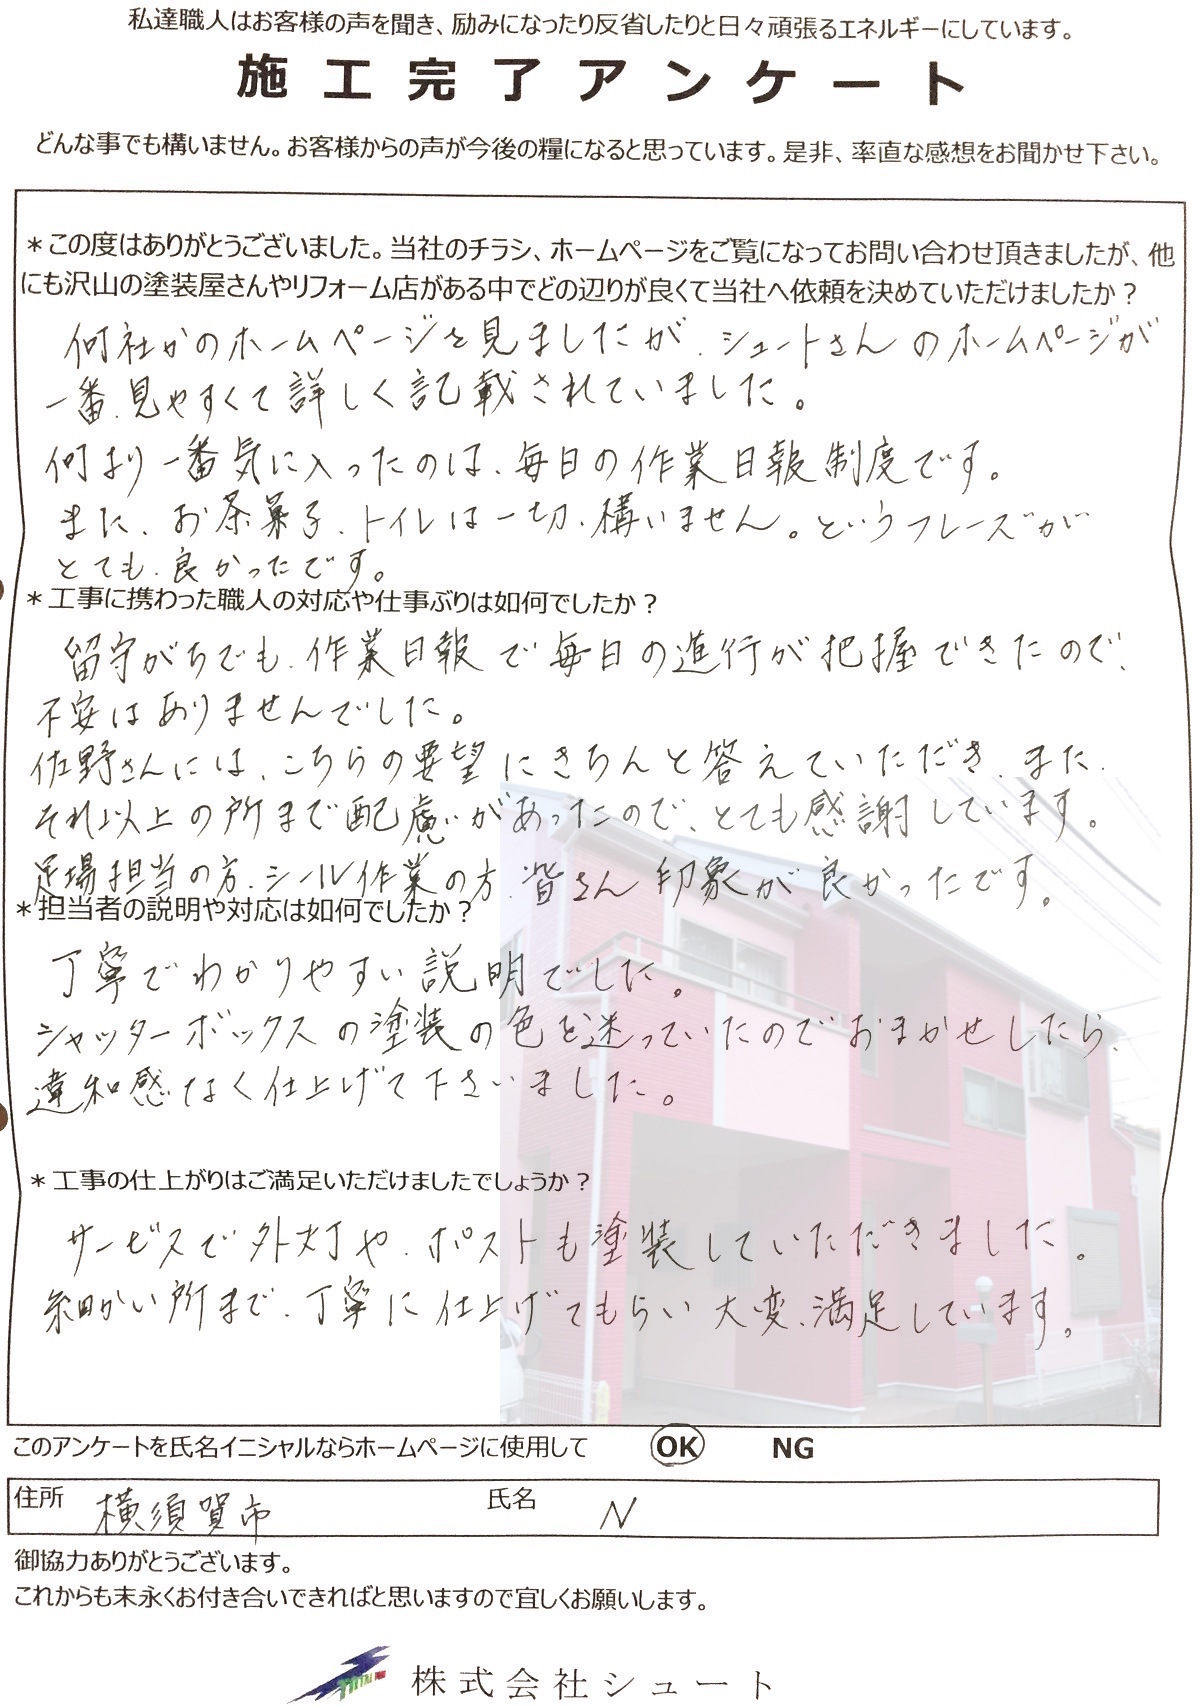 私達職人はお客様の声を聞き、励みになったり反省したりと日々頑張るエネルギーにしています。
施工完了アンケート
どんな事でも構いません。お客様からの声が今後の糧になると思っています。是非、率直な感想をお聞かせ下さい。
＊この度はありがとうございました。当社のチラシ、ホームページをご覧になってお問い合わせ頂きましたが、他
にも沢山の塗装屋さんやリフォーム店がある中でどの辺りが良くて当社へ依頼を決めていただけましたか？
何社かのホームページを見ましたが、シュートさんのホームページが
一番、見やすくて詳しく記載されていました。
何より一番気に入ったのは、毎日の作業日報制度です。
また、お茶菓子、トイレは一切、構いません。というフレーズが
とても、良かったです。
＊工事に携わった職人の対応や仕事ぶりは如何でしたか？
留守がちでも、作業日報で毎日の進行が把握できたので、
不安はありませんでした。
佐野さんには、こちらの要望にきちんと答えていただき、また、
それ以上の所まで配慮があったので、とても感謝しています。
足場担当の方、シール作業の方、皆さん印象が良かったです。
＊担当者の説明や対応は如何でしたか？
丁寧でわかりやすい説明でした。
シャッターボックスの塗装の色を迷っていたのでおまかせしたら、
違和感なく仕上げて下さいました。
＊工事の仕上がりはご満足いただけましたでしょうか？
サービスで外灯や、ポストも塗装していただきました。
細かい所まで、丁寧に仕上げてもらい大変、満足しています。
このアンケートを氏名イニシャルならホームページに使用して OK NG
住所 横須賀市 氏名 N
御協力ありがとうございます。
これからも末永くお付き合いできればと思いますので宜しくお願いします。
株式会社シュート